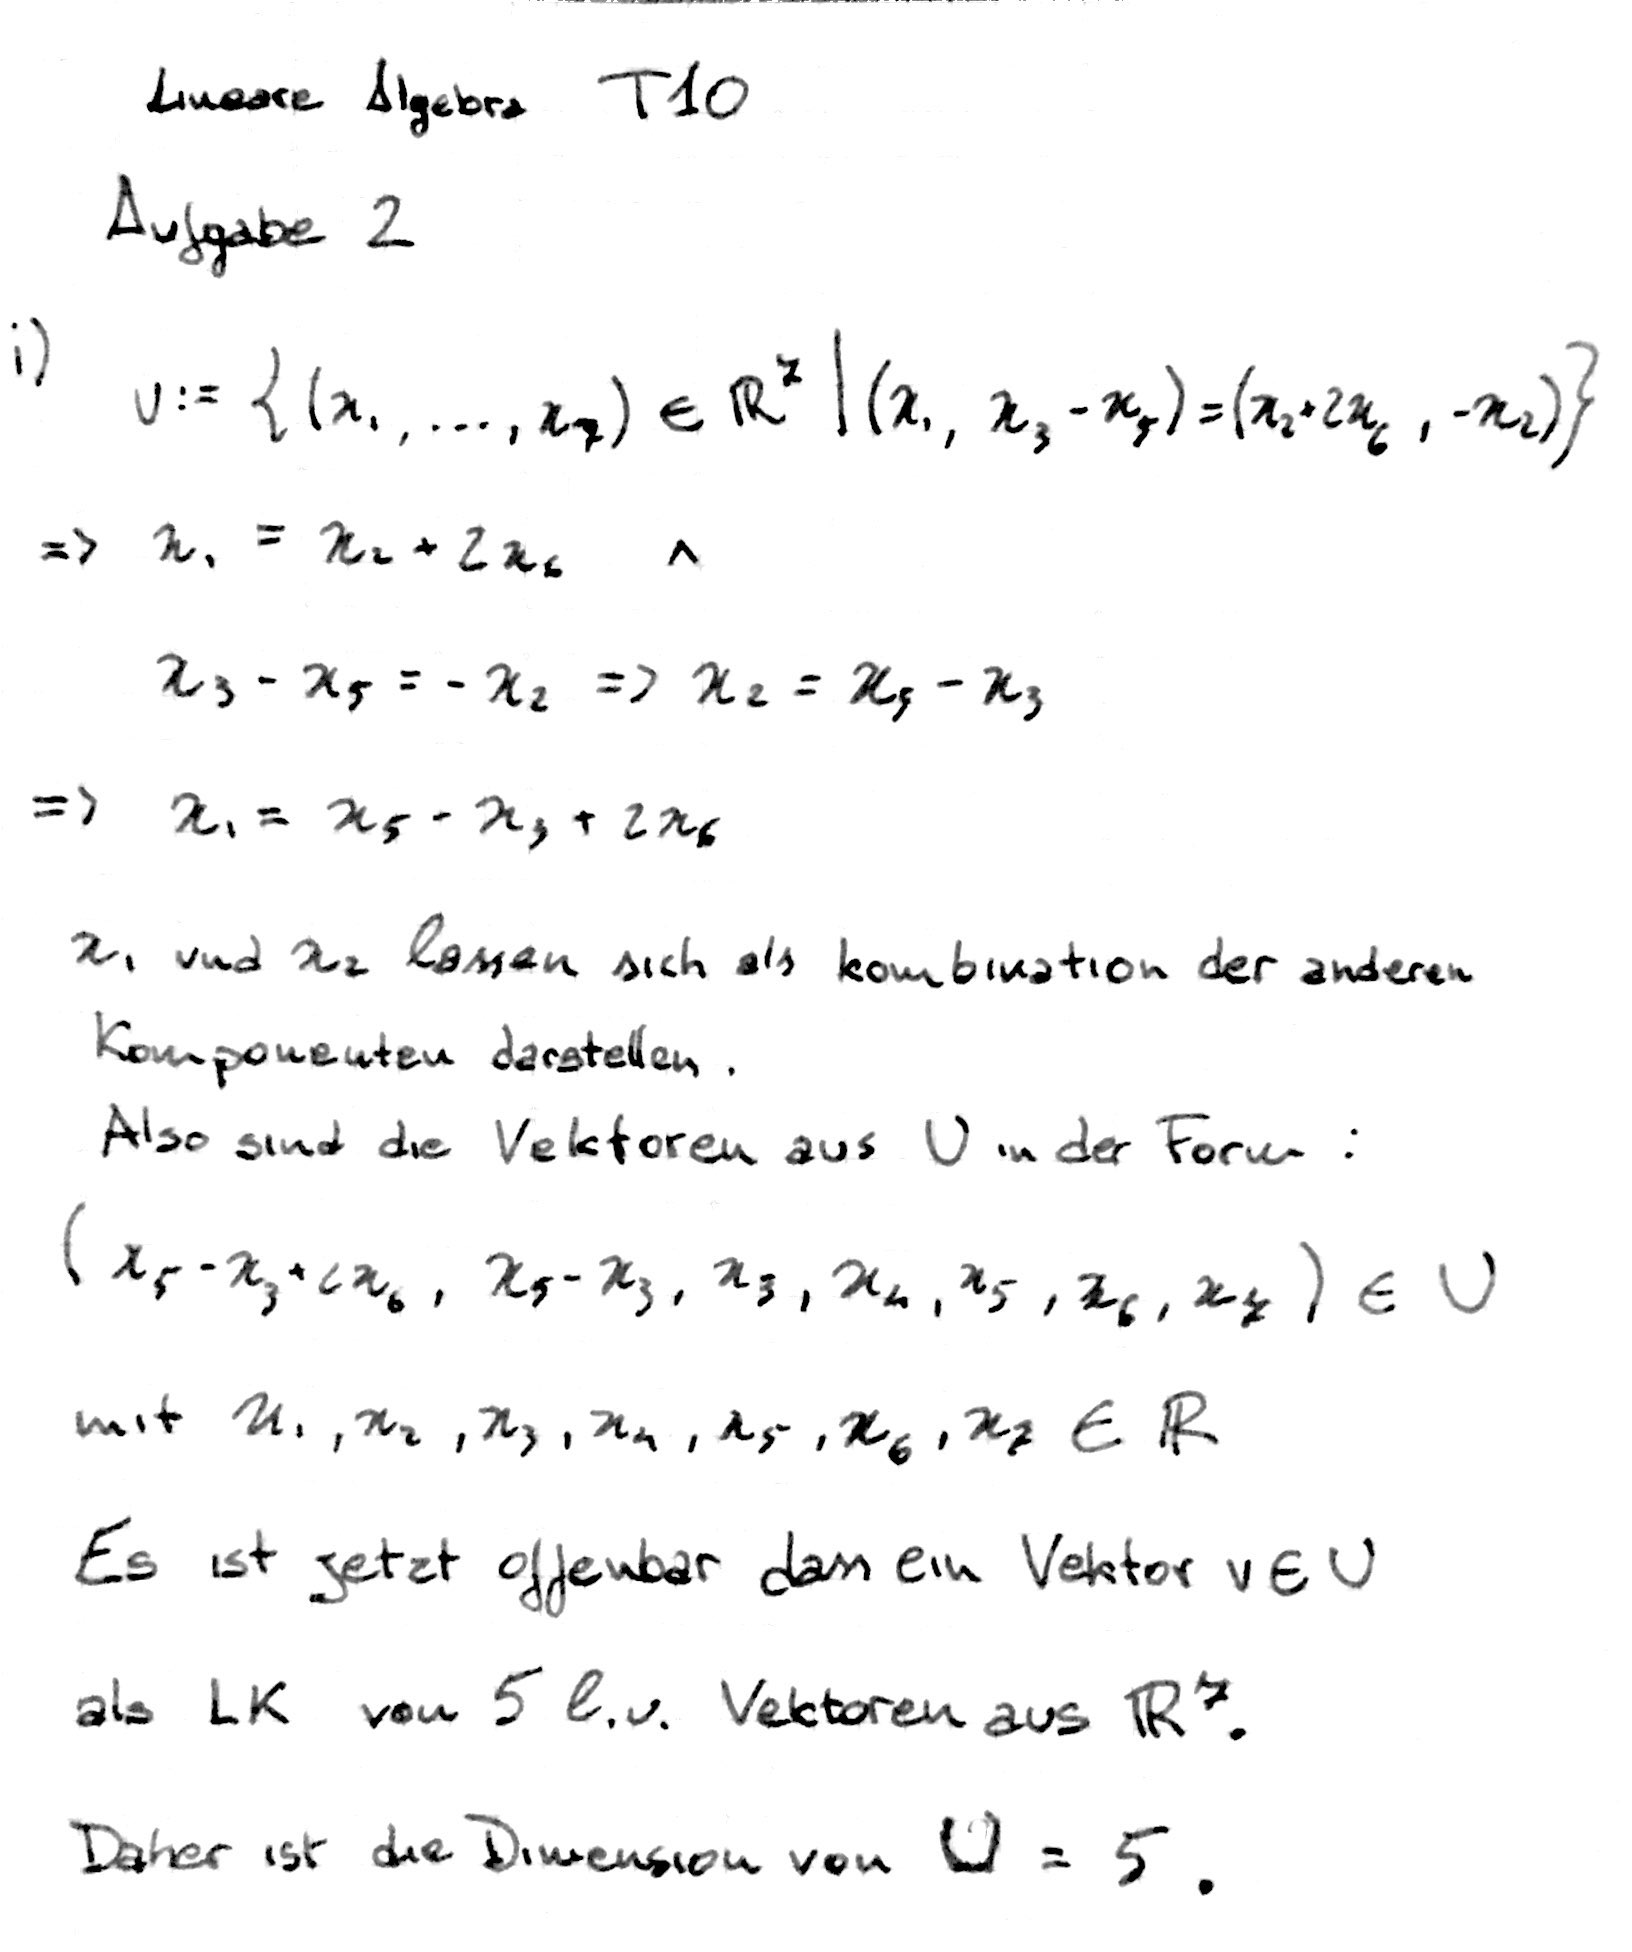 Lineare Algebra T10
Aufgabe 2
i) U := {(x₁, ..., x₇) ∈ ℝ⁷ | (x₁, x₃ - x₅) = (x₂ + 2x₆, -x₂)}
=> x₁ = x₂ + 2x₆ ∧
x₃ - x₅ = - x₂ => x₂ = x₅ - x₃
=> x₁ = x₅ - x₃ + 2x₆
x₁ und x₂ lassen sich als kombination der anderen
Komponenten darstellen.
Also sind die Vektoren aus U in der Form :
(x₅ - x₃ + 2x₆, x₅ - x₃, x₃, x₄, x₅, x₆, x₇) ∈ U
mit x₁, x₂, x₃, x₄, x₅, x₆, x₇ ∈ ℝ
Es ist jetzt offenbar dass ein Vektor v ∈ U
als LK von 5 l.u. Vektoren aus ℝ⁷.
Daher ist die Dimension von U = 5.